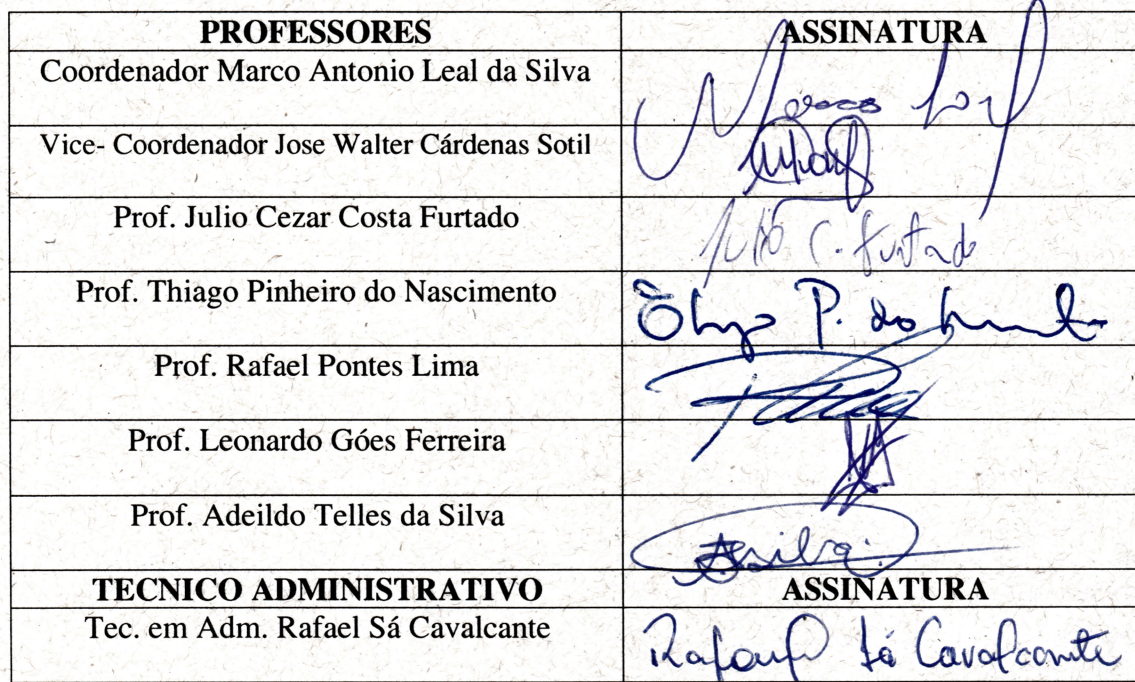 PROFESSORES ASSINATURA
Coordenador Marco Antonio Leal da Silva
Marco Leal
Vice- Coordenador Jose Walter Cárdenas Sotil
Prof. Julio Cezar Costa Furtado
Julio C. Furtado
Prof. Thiago Pinheiro do Nascimento
P. do
Prof. Rafael Pontes Lima
Prof. Leonardo Góes Ferreira
Prof. Adeildo Telles da Silva
ASilva
TECNICO ADMINISTRATIVO ASSINATURA
Tec. em Adm. Rafael Sá Cavalcante
Rafael Sá Cavalcante